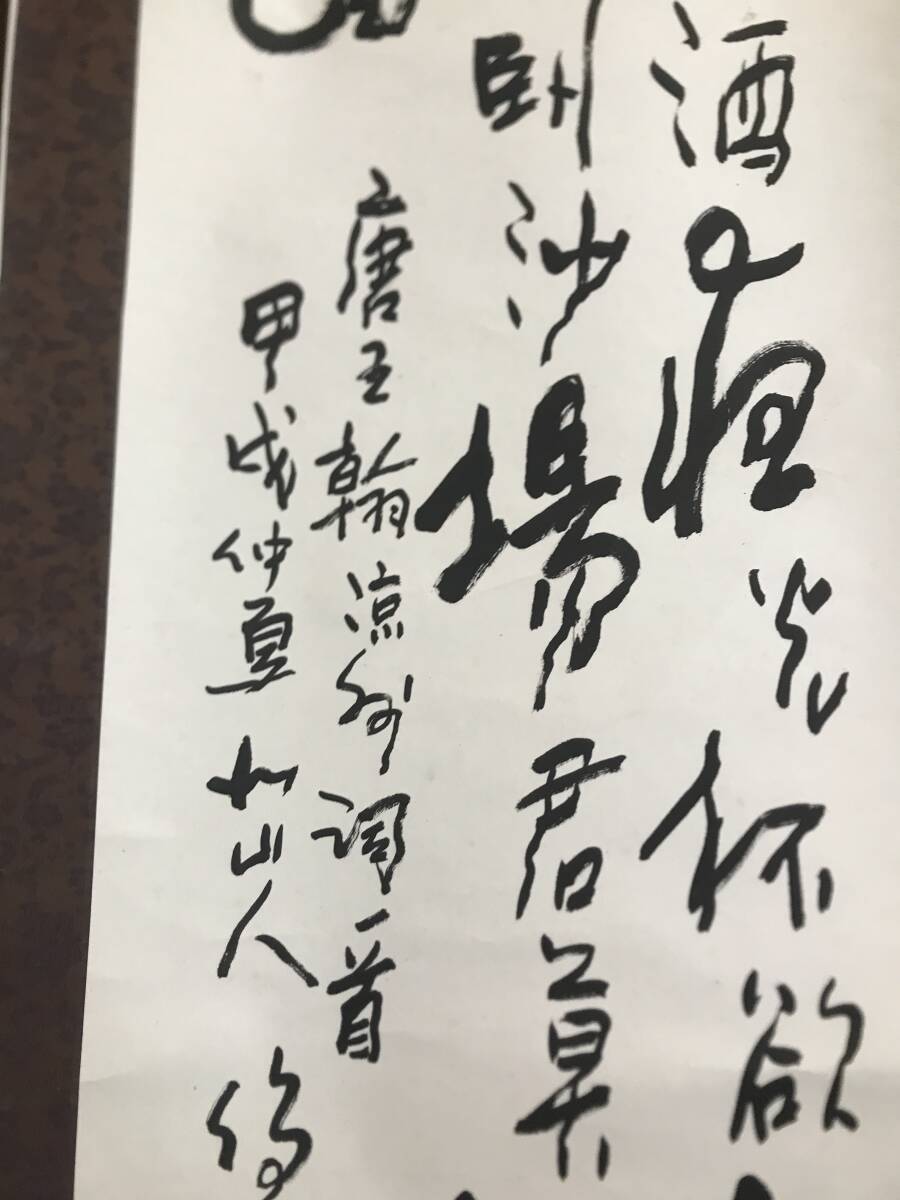 酒夜光杯欲
卧沙場君莫
唐王翰涼州詞一首
甲戌仲夏山人